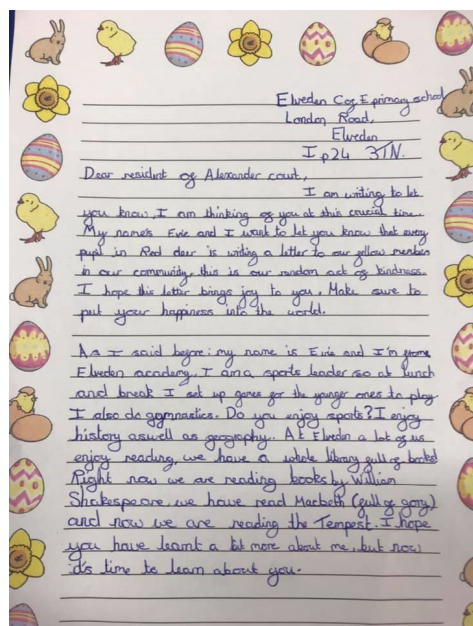 Elveden Cof E primary school
London Road,
Elveden
Ip24 3TN.
Dear resident of Alexander court,
I am writing to let
you know, I am thinking of you at this crucial time.
My name's Evie and I want to let you know that every
pupil in Red deer is writing a letter to our fellow members
in our community, this is our random act of kindness.
I hope this letter brings joy to you. Make sure to
put your happiness into the world.
As I said before: my name is Evie and I'm from
Elveden academy. I am a sports leader so at lunch
and break I set up games for the younger ones to play
I also do gymnastics. Do you enjoy sports? I enjoy
history aswell as geography. At Elveden a lot of us
enjoy reading, we have a whole library full of books!
Right now we are reading books by William
Shakespeare, we have read Macbeth (full of gory)
and now we are reading the Tempest. I hope
you have learnt a bit more about me, but now
it's time to learn about you.